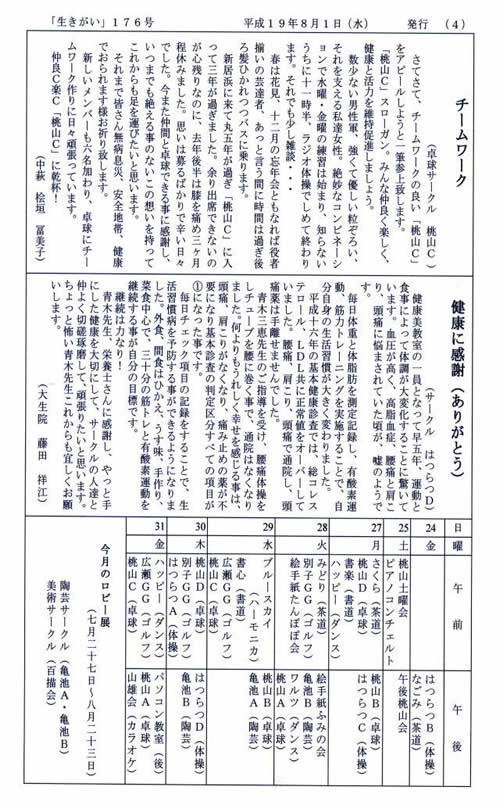 「生きがい」176号
平成19年8月1日（水）
発行（4）
チームワーク
（卓球サークル　桃山C）
さてさて、チームワークの良い「桃山C」
をアピールしようと一筆参上致します。
「桃山C」スローガン。みんな仲良く楽しく、
健康と活力を維持促進しましょう。
数少ない男性軍、強くて優しい粒ぞろい、
それを支える私達女性。絶妙なコンビネーシ
ョンで水曜、金曜の練習は始まり、知らない
うちに十一時半、ラジオ体操でしめて終わり
ます。それでも少し雑談・・・
春は花見、十二月の忘年会ともなれば役者
揃いの芸達者、あっと言う間に時間は過ぎ後
ろ髪ひかれつつバスに乗ります。
新居浜に来て丸五年が過ぎ「桃山C」に入
って三年が過ぎました。余り出席できないの
が心残りなのに、去年後半は膝を痛め三ヶ月
程休みました。思いは募るばかりで辛い日々
でした。今また仲間と卓球できる事に感謝し、
いつまでも絶える事のないこの想いを持って
これからも足を運びたいと思います。
それまで皆さん無病息災、安全地帯、健康
でおられます様お祈り致します。
新しいメンバーも六名加わり、卓球にチー
ムワーク作りに日々頑張っています。
仲良C楽C「桃山C」に乾杯！
（中萩　桧垣　冨美子）
健康に感謝（ありがとう）
（サークル　はつらつD）
健康美教室の一員となって早五年、運動と
食事によって体調が大変化することに驚いて
います。血圧が高く、高脂血症、腰痛と肩こ
り、頭痛に悩まされていた頃が、嘘のようで
す。
毎日体重と体脂肪を測定記録し、有酸素運
動、筋力トレーニングを実施することで、自
分自身の生活習慣が大きく変わりました。
平成十六年の基本健康診査では、総コレス
テロール、LDL共に正常値をオーバーして
いました。腰痛、肩こり、頭痛で通院し、頭
痛薬は手離せませんでした。
青木三恵先生のご指導を受け、腰痛体操を
しチューブを腰に巻く事で、通院はなくなり
ました。何よりもうれしく幸せを感じる事は、
頭痛、肩こりがなくなり、痛み止めの薬が不
要になり基本診査の判定区分すべての項目が
①になった事です。
毎日チェック項目の記録をすることで、生
活習慣病を予防する事ができるようになりま
した。外食、間食はひかえ、うす味、手作り、
菜食中心で、三十分の筋トレと有酸素運動を
継続する事が自分の目標です。
継続は力なり！
青木先生、栄養士さんに感謝し、やっと手
にした健康を大切にして、サークルの人達と
仲よく切磋琢磨して、頑張りたいと思います。
ちょっと怖い青木先生これからも宜しくお願
いします。
（大生院　藤田　祥江）
日　曜　午前　午後
24　金　はつらつB（体操）
なごみ（茶道）
25　土　桃山土曜会　午後桃山会
ピアノコンチェルト
27　月　さくら（茶道）　桃山B（卓球）
桃山D（卓球）　はつらつC（体操）
書楽（書道）
ハッピー（ダンス）
28　火　みどり（茶道）　絵手紙ふみの会
別子GG（ゴルフ）　ワルツ（ダンス）
絵手紙たんぽぽ会　亀池B（陶芸）
29　水　ブルースカイ　桃山B（卓球）
（ハーモニカ）　亀池A（陶芸）
書心（書道）
広瀬GG（ゴルフ）
桃山C（卓球）
30　木　桃山D（卓球）　はつらつD（体操）
別子GG（ゴルフ）　亀池B（陶芸）
はつらつA（体操）
31　金　ハッピー（ダンス）　パソコン教室（後）
広瀬GG（ゴルフ）　桃山A（卓球）
桃山C（卓球）　山雄会（カラオケ）
今月のロビー展
（七月二十七日～八月二十三日）
陶芸サークル（亀池A・亀池B）
美術サークル（百描会）